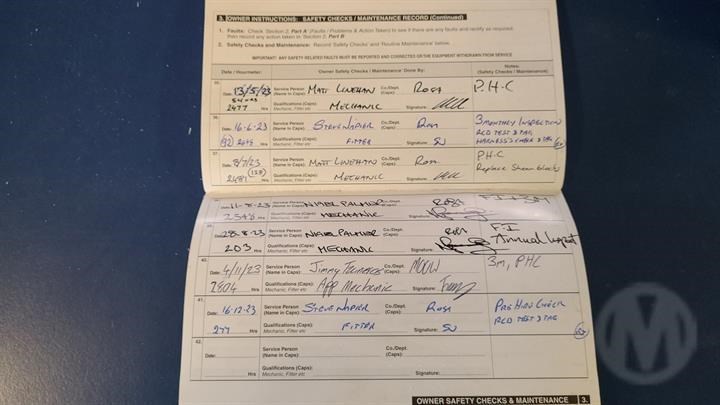 3. OWNER INSTRUCTIONS: SAFETY CHECKS / MAINTENANCE RECORD (Continued)
1. Faults: Check 'Section 2, Part A' (Faults / Problems & Action Taken) to see if there are any faults and rectify as required, then record any action taken in 'Section 2, Part B'
2. Safety Checks and Maintenance: Record 'Safety Checks' and 'Routine Maintenance' below.
IMPORTANT! ANY SAFETY RELATED FAULTS MUST BE REPORTED AND CORRECTED OR THE EQUIPMENT WITHDRAWN FROM SERVICE
Date / Hourmeter: Owner 'Safety Checks / Maintenance' Done By: Notes: (Safety Checks / Maintenance)
35.
Date: 13/5/23 Service Person (Name in Caps): MATT LINEHAN Co./Dept. (Caps): ROSA P.H-C
2477 Hrs Qualifications (Caps): Mechanic, Fitter etc MECHANIC Signature:
36.
Date: 16-6-23 Service Person (Name in Caps): STEVE NAPIER Co./Dept. (Caps): ROSA 3 MONTHLY INSPECTION
RCD TEST & TAG
Hrs Qualifications (Caps): Mechanic, Fitter etc FITTER Signature: SN
37.
Date: 8/7/23 Service Person (Name in Caps): MATT LINEHAN Co./Dept. (Caps): ROSA PH-C
2481 (128) Hrs Qualifications (Caps): Mechanic, Fitter etc MECHANIC Signature: Replace
Date: 11-8-23 Service Person (Name in Caps): NIGEL PALMER ROSA F.I + 3M
Hrs Qualifications (Caps): Mechanic, Fitter etc MECHANIC Signature:
39.
Date: 28-8-23 Service Person (Name in Caps): NIGEL PALMER Co./Dept. (Caps): ROSA F.I
Annual
203 Hrs Qualifications (Caps): Mechanic, Fitter etc MECHANIC Signature:
40.
Date: 4/11/23 Service Person (Name in Caps): Jimmy Co./Dept. (Caps): 3m, PHC
2804 Hrs Qualifications (Caps): Mechanic, Fitter etc App Mechanic Signature:
41.
Date: 16-12-23 Service Person (Name in Caps): STEVE NAPIER Co./Dept. (Caps): ROSA PRE HIRE CHECK
RCD TEST & TAG
277 Hrs Qualifications (Caps): Mechanic, Fitter etc FITTER Signature: SN
42.
Date: Service Person (Name in Caps): Co./Dept. (Caps):
Hrs Qualifications (Caps): Mechanic, Fitter etc Signature:
OWNER SAFETY CHECKS & MAINTENANCE 3.